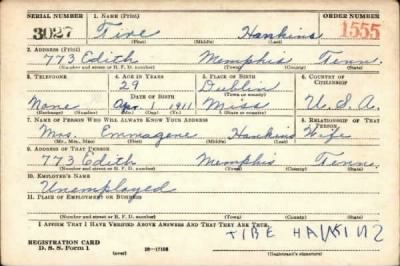 SERIAL NUMBER 1. NAME (Print) ORDER NUMBER
3027 Tire Hankins 1555
(First) (Middle) (Last)
2. ADDRESS (Print)
773 Edith Memphis Tenn.
(Number and street or R. F. D. number) (Town) (County) (State)
3. TELEPHONE 4. AGE IN YEARS 5. PLACE OF BIRTH 6. COUNTRY OF CITIZENSHIP
29 Dublin
DATE OF BIRTH (Town or county)
None Apr. 1 1911 Miss U.S.A.
(Exchange) (Number) (Mo.) (Day) (Yr.) (State or country)
7. NAME OF PERSON WHO WILL ALWAYS KNOW YOUR ADDRESS 8. RELATIONSHIP OF THAT PERSON
Mrs. Emmagene Hankins Wife
(Mr., Mrs., Miss) (First) (Middle) (Last)
9. ADDRESS OF THAT PERSON
773 Edith Memphis Tenn.
(Number and street or R. F. D. number) (Town) (County) (State)
10. EMPLOYER'S NAME
Unemployed
11. PLACE OF EMPLOYMENT OR BUSINESS
(Number and street or R. F. D. number) (Town) (County) (State)
I AFFIRM THAT I HAVE VERIFIED ABOVE ANSWERS AND THAT THEY ARE TRUE.
REGISTRATION CARD
D. S. S. Form 1 (over) 16—17105 (Registrant's signature)